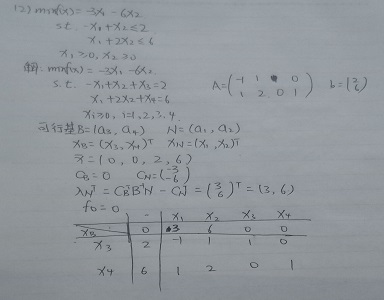 (2) minf(x) = -3x₁ - 6x₂
s.t. -x₁ + x₂ ≤ 2
x₁ + 2x₂ ≤ 6
x₁ ≥ 0, x₂ ≥ 0
解: minf(x) = -3x₁ - 6x₂
s.t. -x₁ + x₂ + x₃ = 2
x₁ + 2x₂ + x₄ = 6
xᵢ ≥ 0, i = 1, 2, 3, 4.
A = (-1 1 1 0
1 2 0 1) b = (2
6)
可行基B = (a₃, a₄) N = (a₁, a₂)
x_B = (x₃, x₄)ᵀ x_N = (x₁, x₂)ᵀ
x̄ = (0, 0, 2, 6)
C_B = 0 C_N = (-3
-6)
λ_Nᵀ = C_BᵀB⁻¹N - C_Nᵀ = (3
6)ᵀ = (3, 6)
f₀ = 0
- x₁ x₂ x₃ x₄
x_B 0 3 6 0 0
x₃ 2 -1 1 1 0
x₄ 6 1 2 0 1